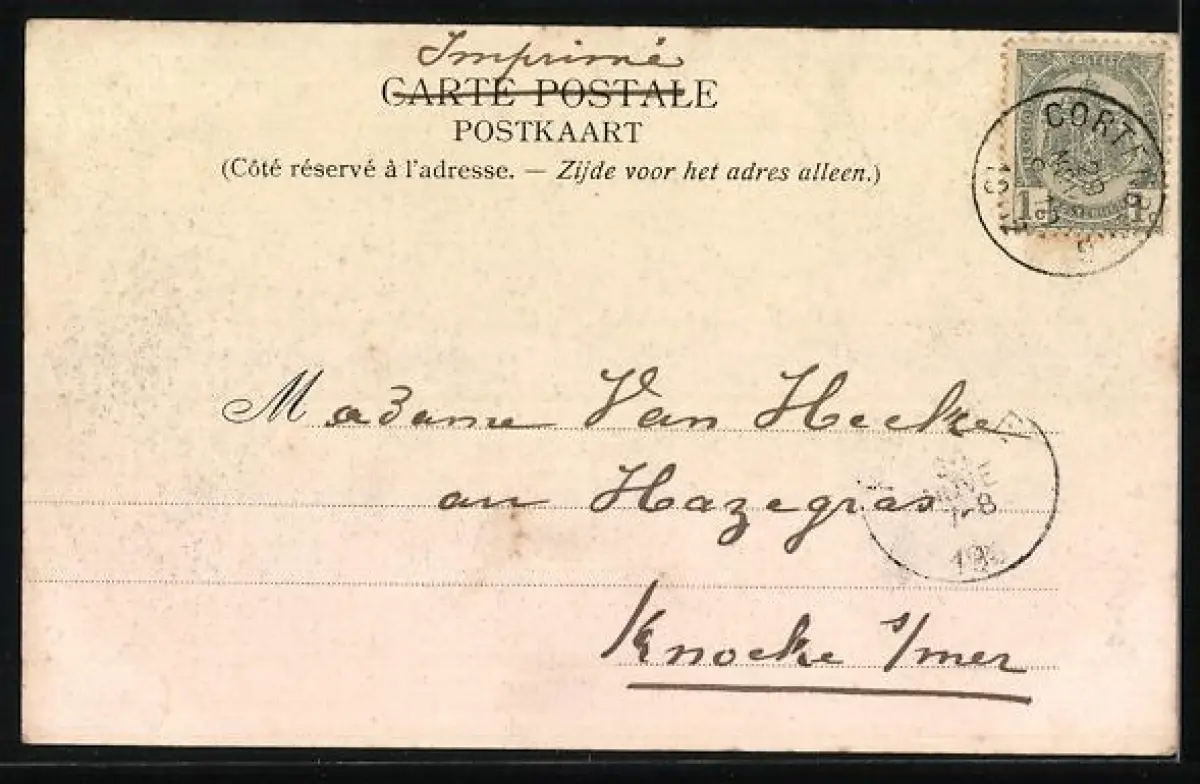 Imprimé
CARTE POSTALE
POSTKAART
(Côté réservé à l'adresse. — Zijde voor het adres alleen.)
1c 1c
Madame Van Hecke
au Hazegras
Knocke s/mer